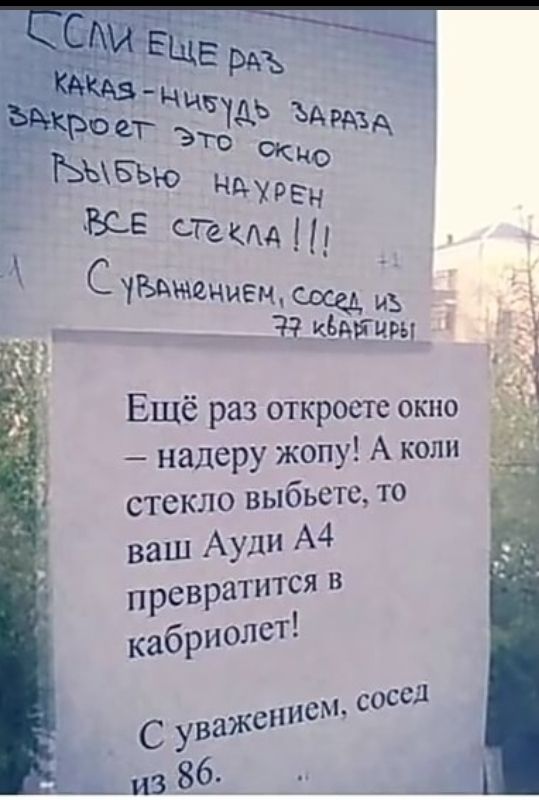 ЕСЛИ ЕЩЕ РАЗ
КАКАЯ-НИБУДЬ ЗАРАЗА
ЗАКРОЕТ ЭТО ОКНО
ВЫБЬЮ НАХРЕН
ВСЕ СТЕКЛА!!!
+1
С УВАЖЕНИЕМ, СОСЕД ИЗ
77 КВАРТИРЫ
Ещё раз откроете окно
– надеру жопу! А коли
стекло выбьете, то
ваш Ауди А4
превратится в
кабриолет!
С уважением, сосед
из 86.